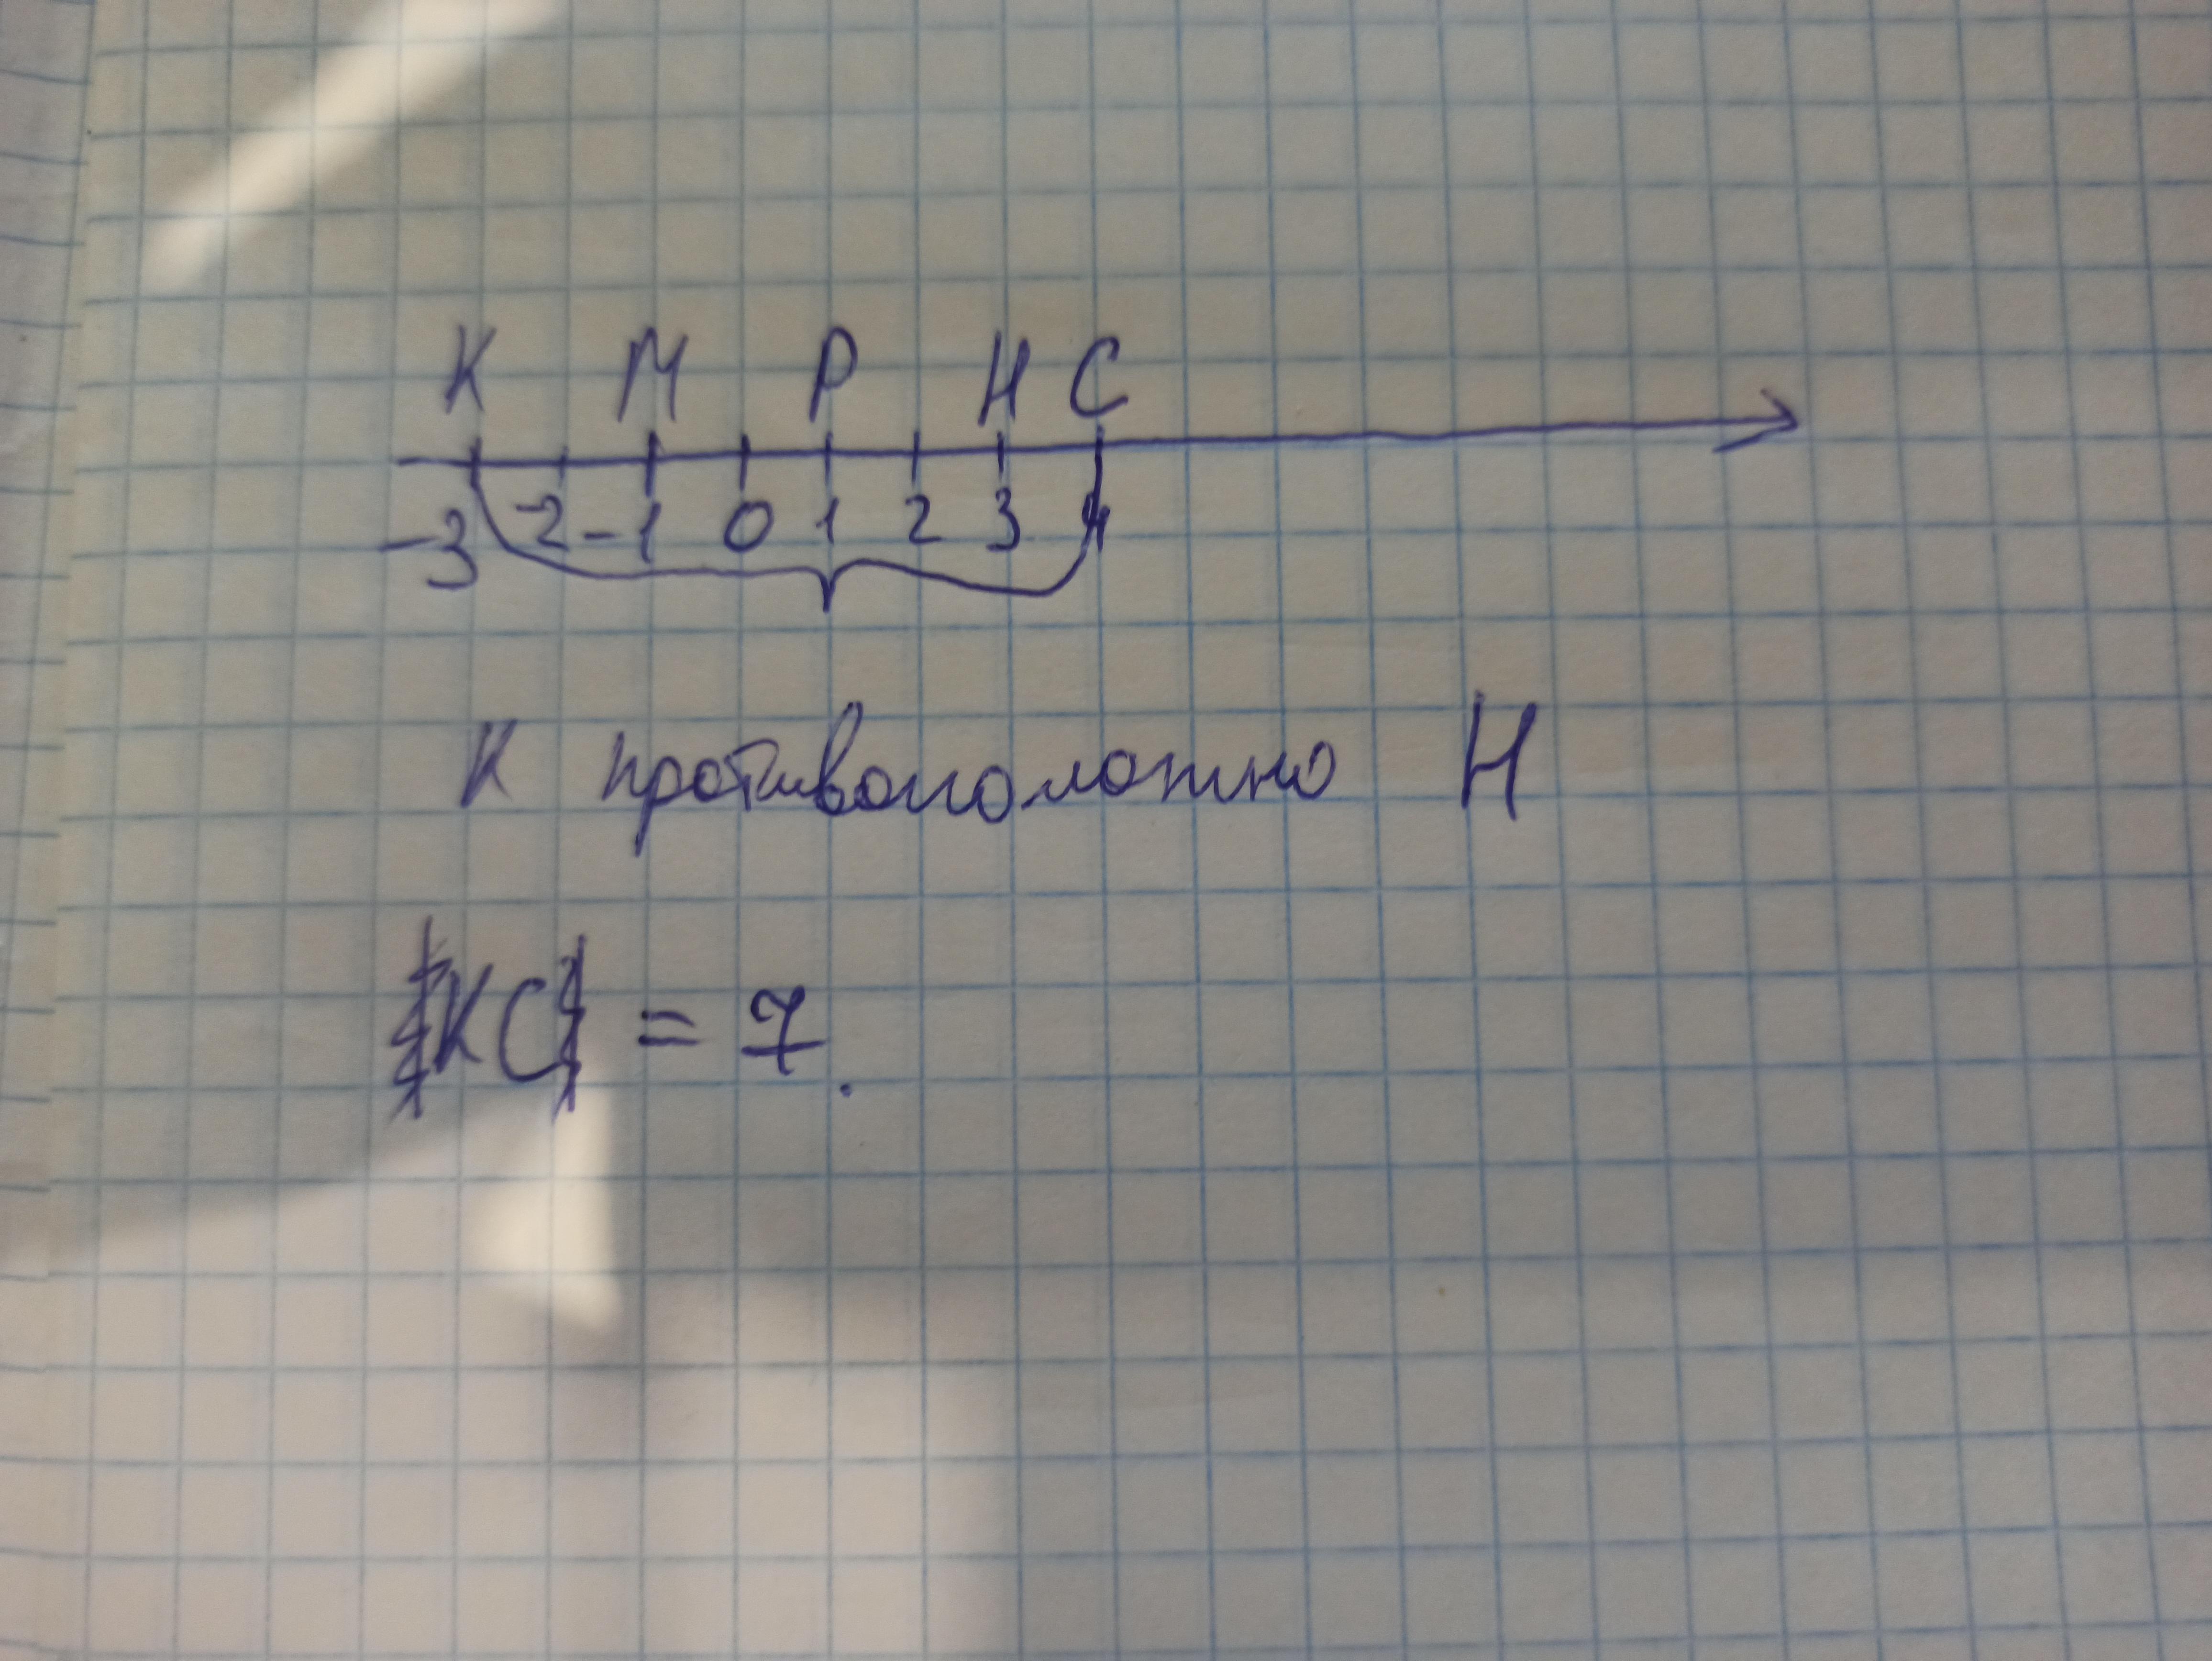 К М Р Н С
-3 -2 -1 0 1 2 3 4
К противоположно Н
КС = 7.